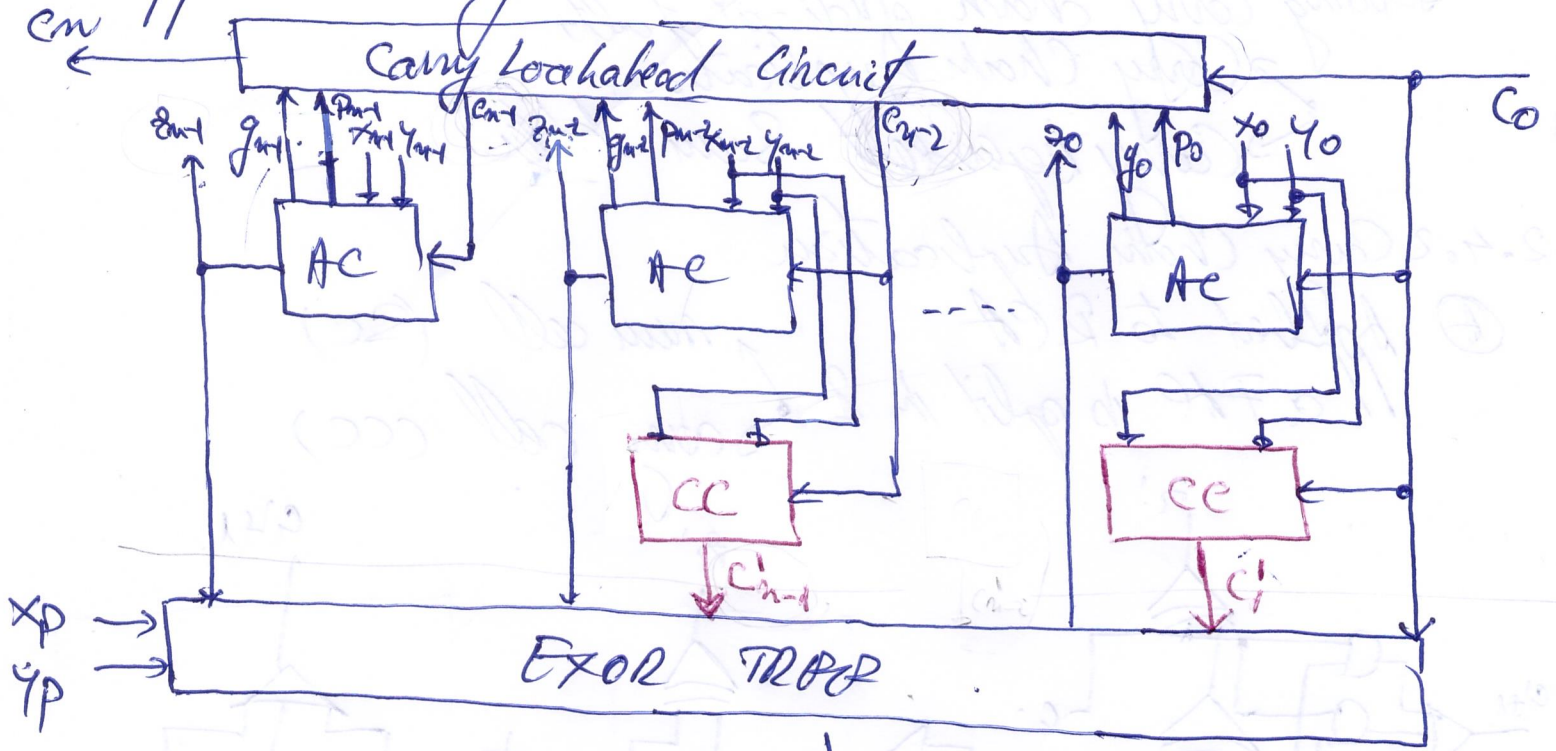 cn
Carry Lookahead Circuit
C0
zn-1 gn-1 pn-1 xn-1 yn-1 cn-1 zn-2 gn-2 pn-2 xn-2 yn-2 cn-2 z0 g0 p0 x0 y0
AC AC AC
----
CC CC
c'n-1 c'1
xp
yp
EXOR TREE